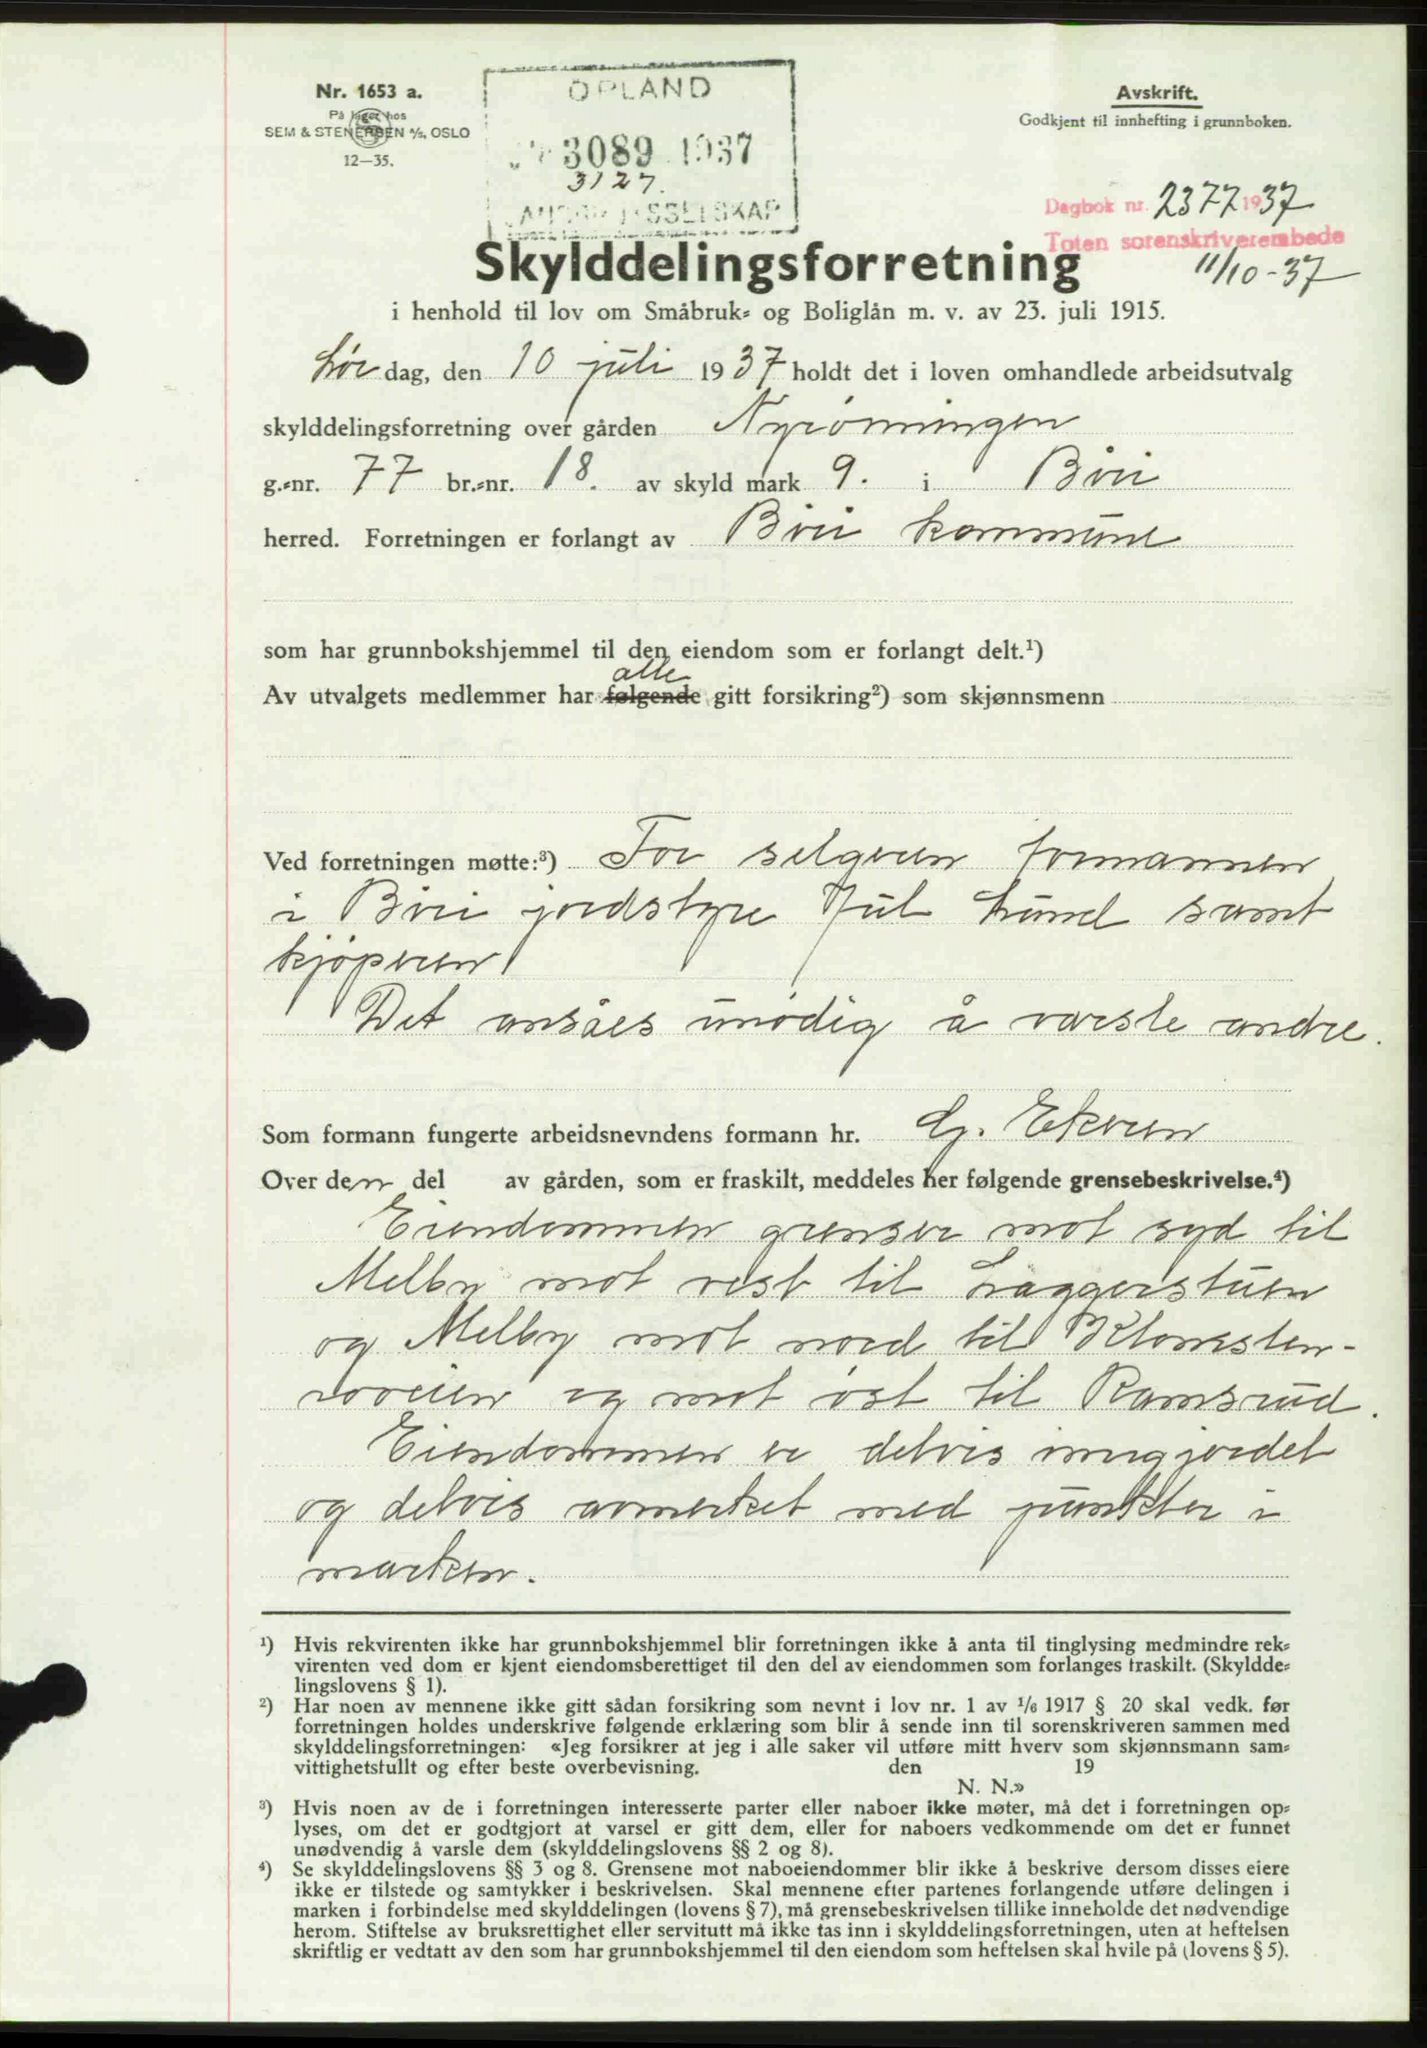 Nr. 1653 a.
På lager hos
SEM & STENERSEN A/S, OSLO
12—35.
OPLAND
3089 1937
3127.
Avskrift.
Godkjent til innhefting i grunnboken.
Dagbok nr. 2377 1937
Toten sorenskriverembede
11/10-37
Skylddelingsforretning
i henhold til lov om Småbruk- og Boliglån m. v. av 23. juli 1915.
Lørdag, den 10 juli 1937 holdt det i loven omhandlede arbeidsutvalg
skylddelingsforretning over gården Nyrønningen
g.-nr. 77 br.-nr. 18. av skyld mark 9. i Biri
herred. Forretningen er forlangt av Biri kommune
som har grunnbokshjemmel til den eiendom som er forlangt delt.¹)
alle
Av utvalgets medlemmer har følgende gitt forsikring²) som skjønnsmenn
Ved forretningen møtte:³) For selgeren formannen
i Biri jordstyre Jul Lund samt
kjøperen
Det ansåes unødig å varsle andre.
Som formann fungerte arbeidsnevndens formann hr. G. Ekeren
Over den del av gården, som er fraskilt, meddeles her følgende grensebeskrivelse.⁴)
Eiendommen grenser mot syd til
Melby mot vest til Laggerstuen
og Melby mot nord til Klomsten-
roveien og mot øst til Ramsrud.
Eiendommen er delvis inngjerdet
og delvis avmerket med punkter i
marken.
¹) Hvis rekvirenten ikke har grunnbokshjemmel blir forretningen ikke å anta til tinglysing medmindre rek-
virenten ved dom er kjent eiendomsberettiget til den del av eiendommen som forlanges fraskilt. (Skyldde-
lingslovens § 1).
²) Har noen av mennene ikke gitt sådan forsikring som nevnt i lov nr. 1 av 1/6 1917 § 20 skal vedk. før
forretningen holdes underskrive følgende erklæring som blir å sende inn til sorenskriveren sammen med
skylddelingsforretningen: «Jeg forsikrer at jeg i alle saker vil utføre mitt hverv som skjønnsmann sam-
vittighetsfullt og efter beste overbevisning. den 19
N. N.»
³) Hvis noen av de i forretningen interesserte parter eller naboer ikke møter, må det i forretningen op-
lyses, om det er godtgjort at varsel er gitt dem, eller for naboers vedkommende om det er funnet
unødvendig å varsle dem (skylddelingslovens §§ 2 og 8).
⁴) Se skylddelingslovens §§ 3 og 8. Grensene mot naboeiendommer blir ikke å beskrive dersom disses eiere
ikke er tilstede og samtykker i beskrivelsen. Skal mennene efter partenes forlangende utføre delingen i
marken i forbindelse med skylddelingen (lovens § 7), må grensebeskrivelsen tillike inneholde det nødvendige
herom. Stiftelse av bruksrettighet eller servitutt må ikke tas inn i skylddelingsforretningen, uten at heftelsen
skriftlig er vedtatt av den som har grunnbokshjemmel til den eiendom som heftelsen skal hvile på (lovens § 5).